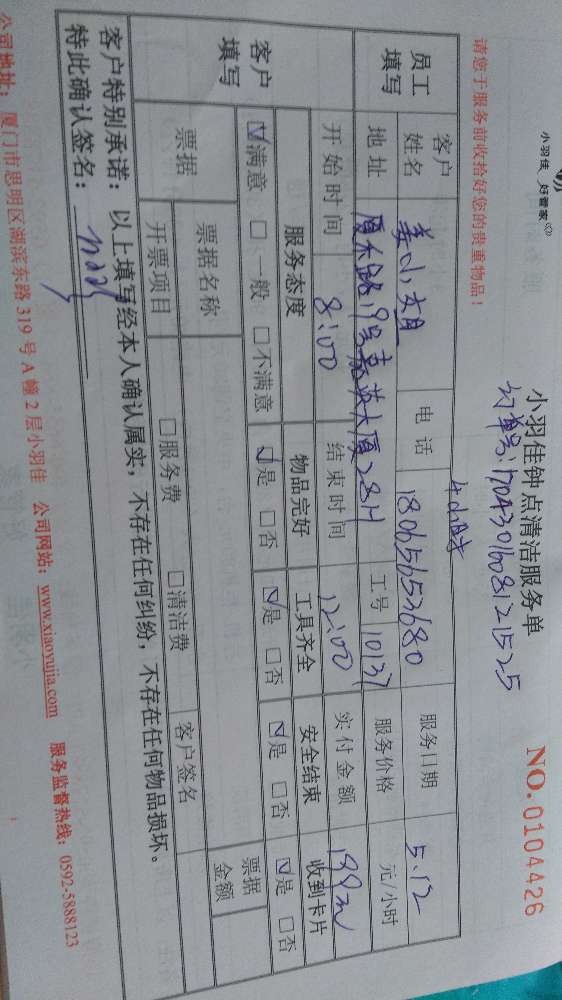 小羽佳 好管家
小羽佳钟点清洁服务单
NO.0104426
请您于服务前收拾好您的贵重物品！
4小时
员工填写
客户姓名
电话 18065653680
服务日期 5.12
地址
工号 10137
服务价格 元/小时
客户填写
开始时间 8:00
结束时间 12:00
实付金额
服务态度 物品完好 工具齐全 安全结束 收到卡片
☑满意 □一般 □不满意 ☑是 □否 ☑是 □否 ☑是 □否 ☑是 □否
票据 票据名称 票据金额
开票项目 □服务费 □清洁费 客户签名
客户特别承诺：以上填写经本人确认属实，不存在任何纠纷，不存在任何物品损坏。
特此确认签名：
公司地址：厦门市思明区湖滨东路 319 号 A 幢 2 层小羽佳 公司网站：www.xiaoyujia.com 服务监督热线：0592-5888123